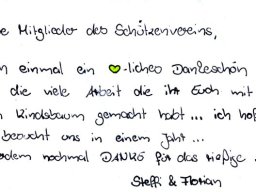 e Mitglieder des Schützenvereins,
n einmal ein 💚-liches Dankeschön
die viele Arbeit die ihr Euch mit
n Kindsbaum gemacht habt... ich ho
besucht uns in einem Jahr...
rdem nochmal DANKE für das rießige
Steffi & Florian